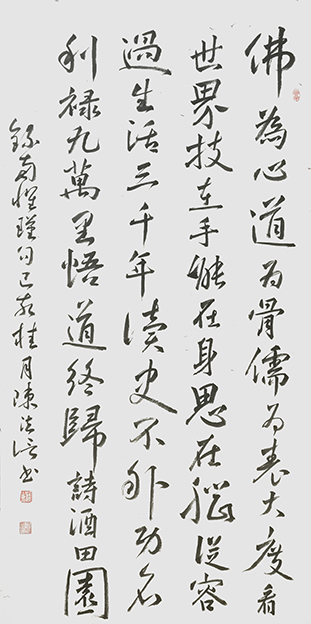 佛為心道为骨儒为表大度看
世界技在手能在身思在腦從容
過生活三千年讀史不外功名
利祿九萬里悟道終歸詩酒田園
錄南懷瑾句己亥桂月陳法书